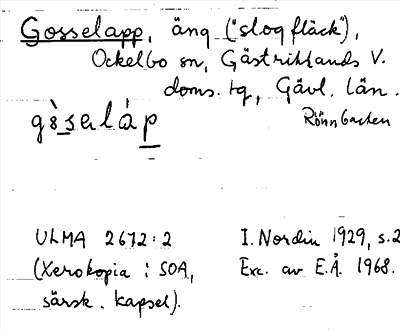 Gosselapp, äng ("slogfläck"),
Ockelbo sn, Gästriklands V.
doms. tg, Gävl. län.
gòsəláp
Rönnbacken
ULMA 2672:2
(Xerokopia i SOA,
särsk. kapsel).
I. Nordin 1929, s.2
Exc. av E.Å. 1968.